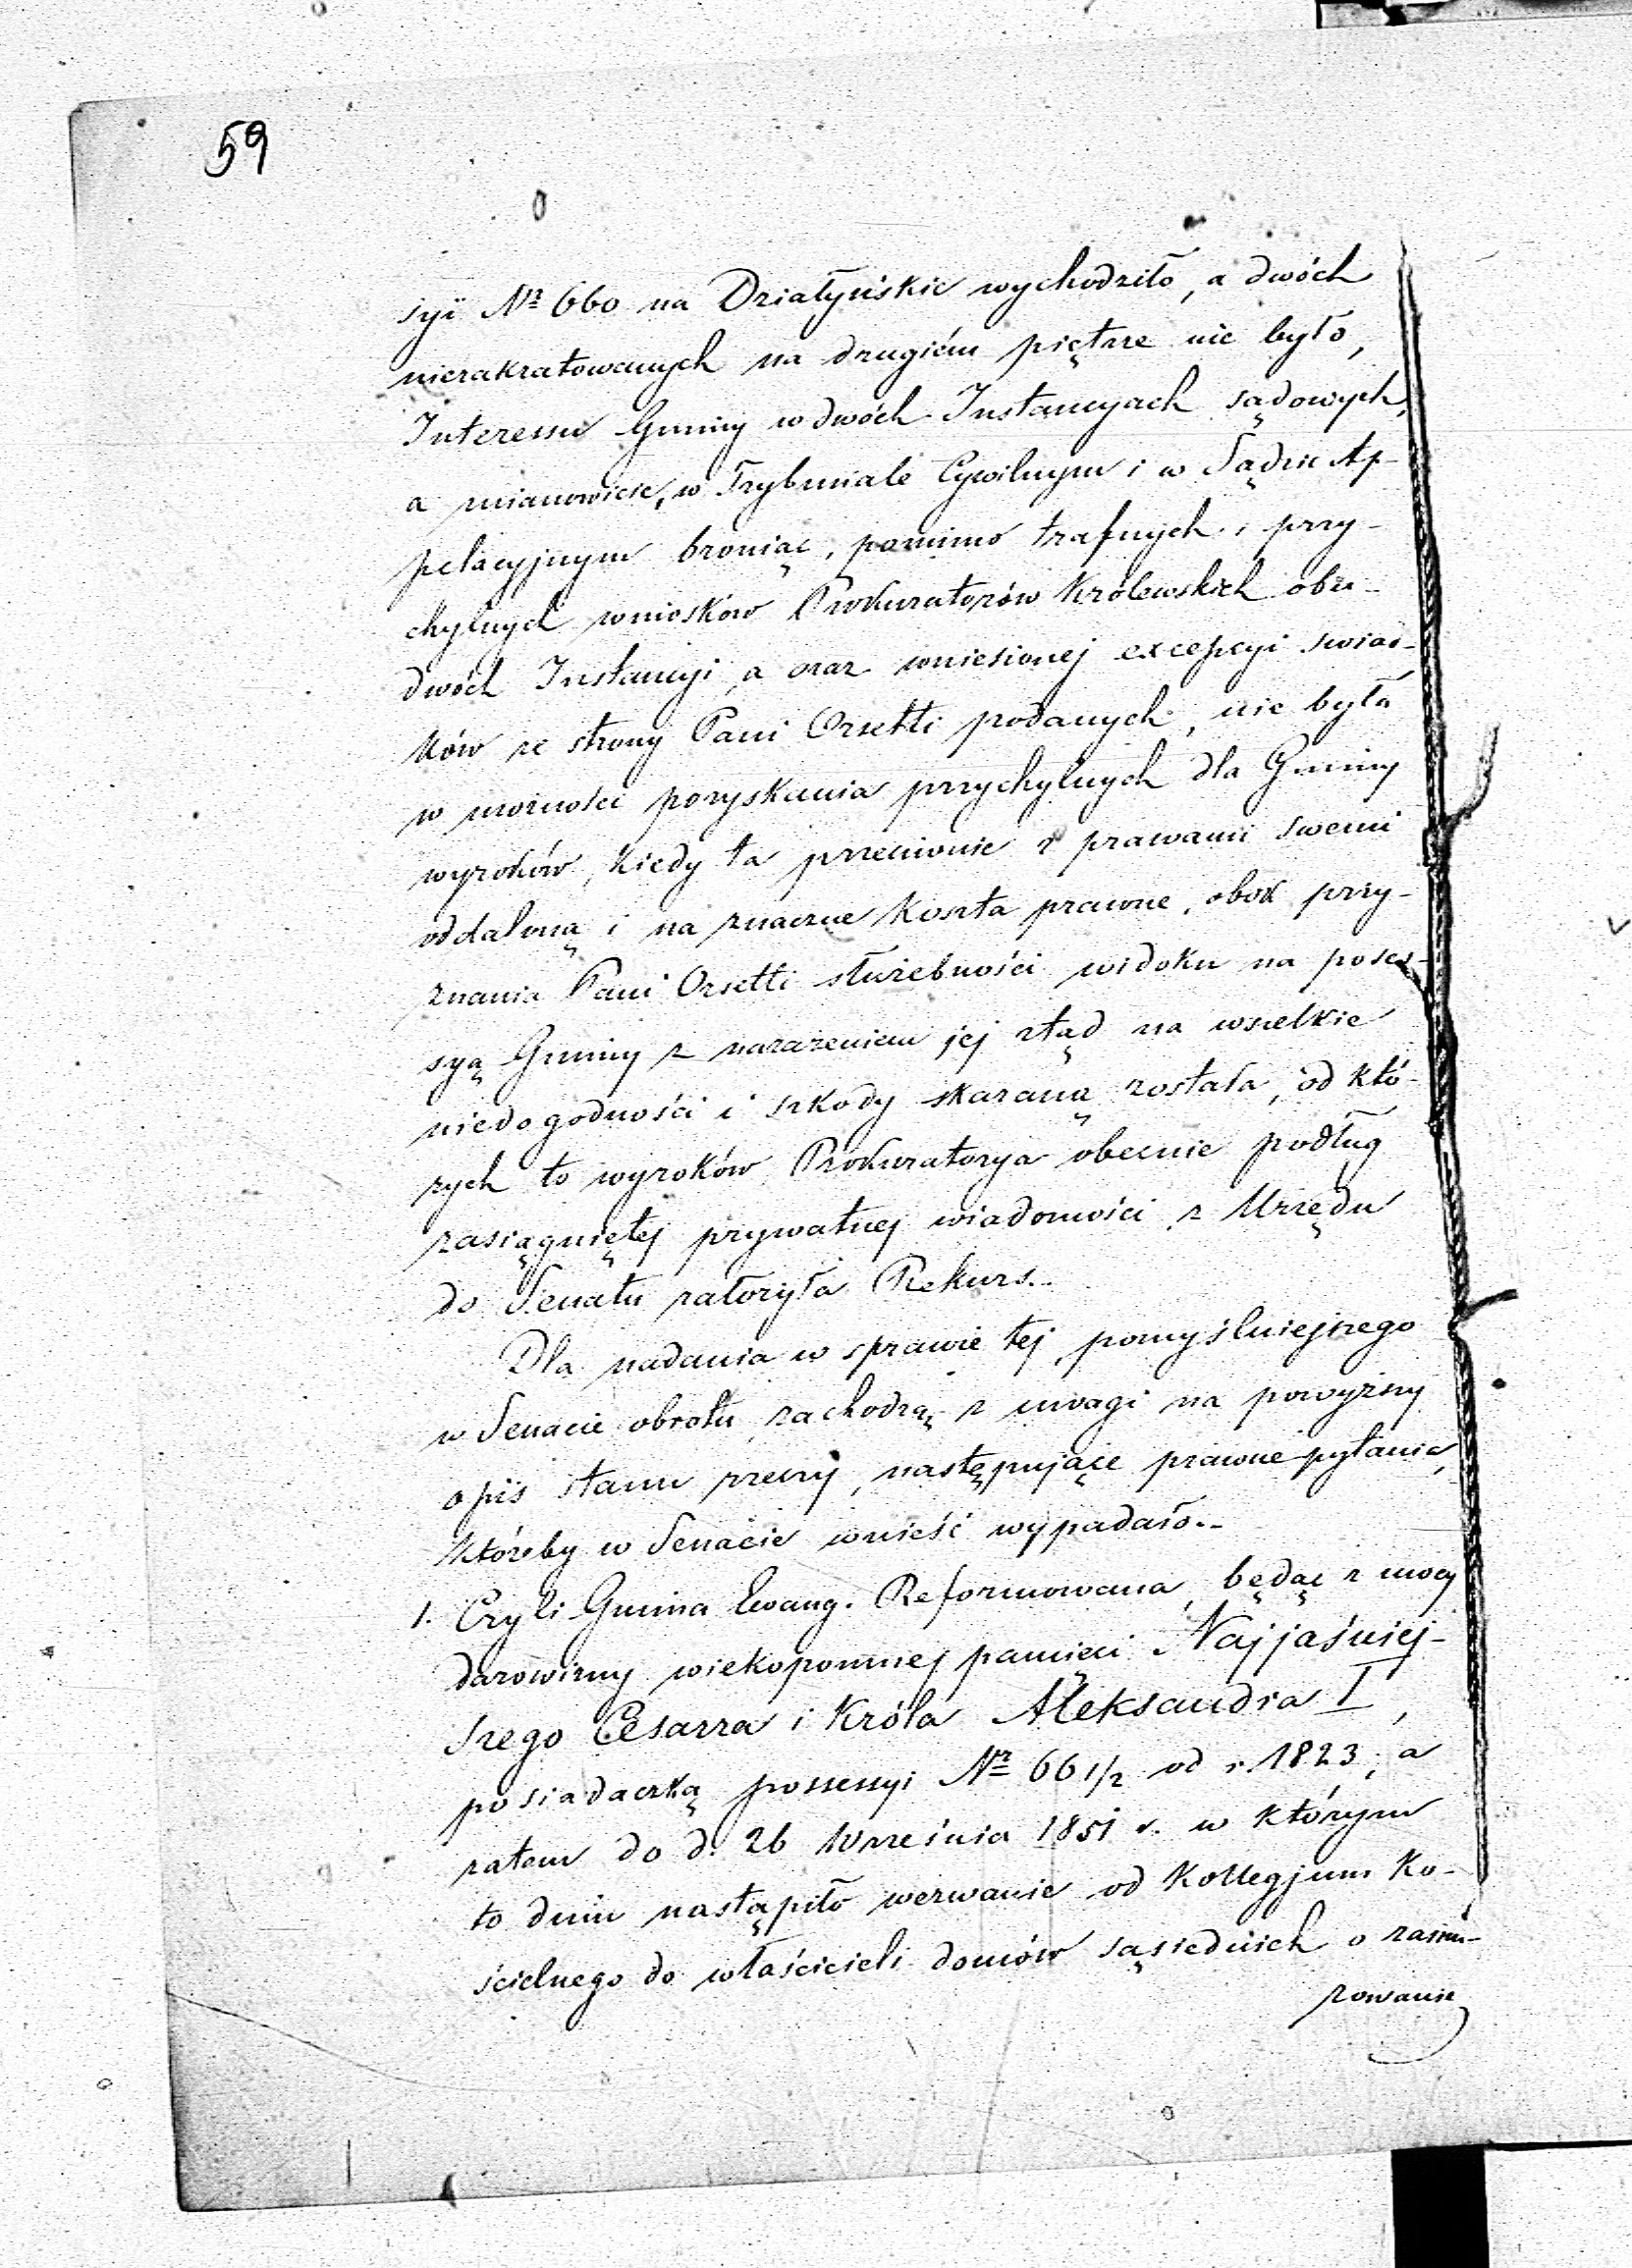 59
syi Nr 660 na Działyńskie wychodziło, a dwóch
niezakratowanych na drugiém piętrze nie było,
Interessu Gminy w dwóch Instancyach sądowych,
a mianowicie, w Trybunale Cywilnym i w Sądzie Ap-
pelacyjnym broniąc, pomimo trafnych i przy-
chylnych wniosków Prokuratorów Królewskich obu-
dwóch Instancyi, a oraz wniesionej excepcyi świad-
ków ze strony Pani Orsetti podanych, nie była
w możności pozyskania przychylnych dla Gminy
wyroków, kiedy ta przeciwnie z prawami swemi
oddaloną i na znaczne koszta prawne, obok przy-
znania Pani Orsetti służebności widoku na posses-
syą Gminy z narażeniem jej ztąd na wszelkie
niedogodności i szkody skazaną została, od któ-
rych to wyroków Prokuratorya obecnie podług
zasiągniętej prywatnej wiadomości z Urzędu
do Senatu założyła Rekurs.-
Dla nadania w sprawie tej pomyślniejszego
w Senacie obrotu, zachodzą z uwagi na powyższy
opis stanu rzeczy, następujące prawne pytania,
któreby w Senacie wnieść wypadało.-
1. Czyli Gmina Ewang. Reformowana, będąc z mocy
darowizny wiekopomnej pamięci Najjaśniej-
szego Cesarza i Króla Aleksandra I,
posiadaczką possessyi Nr 66 1/2 od r. 1823, a
zatem do d. 26 Września 1851 r. w którym
to dniu nastąpiło wezwanie od Kollegjum Ko-
ścielnego do właścicieli domów sąsiednich o zamu-
rowanie